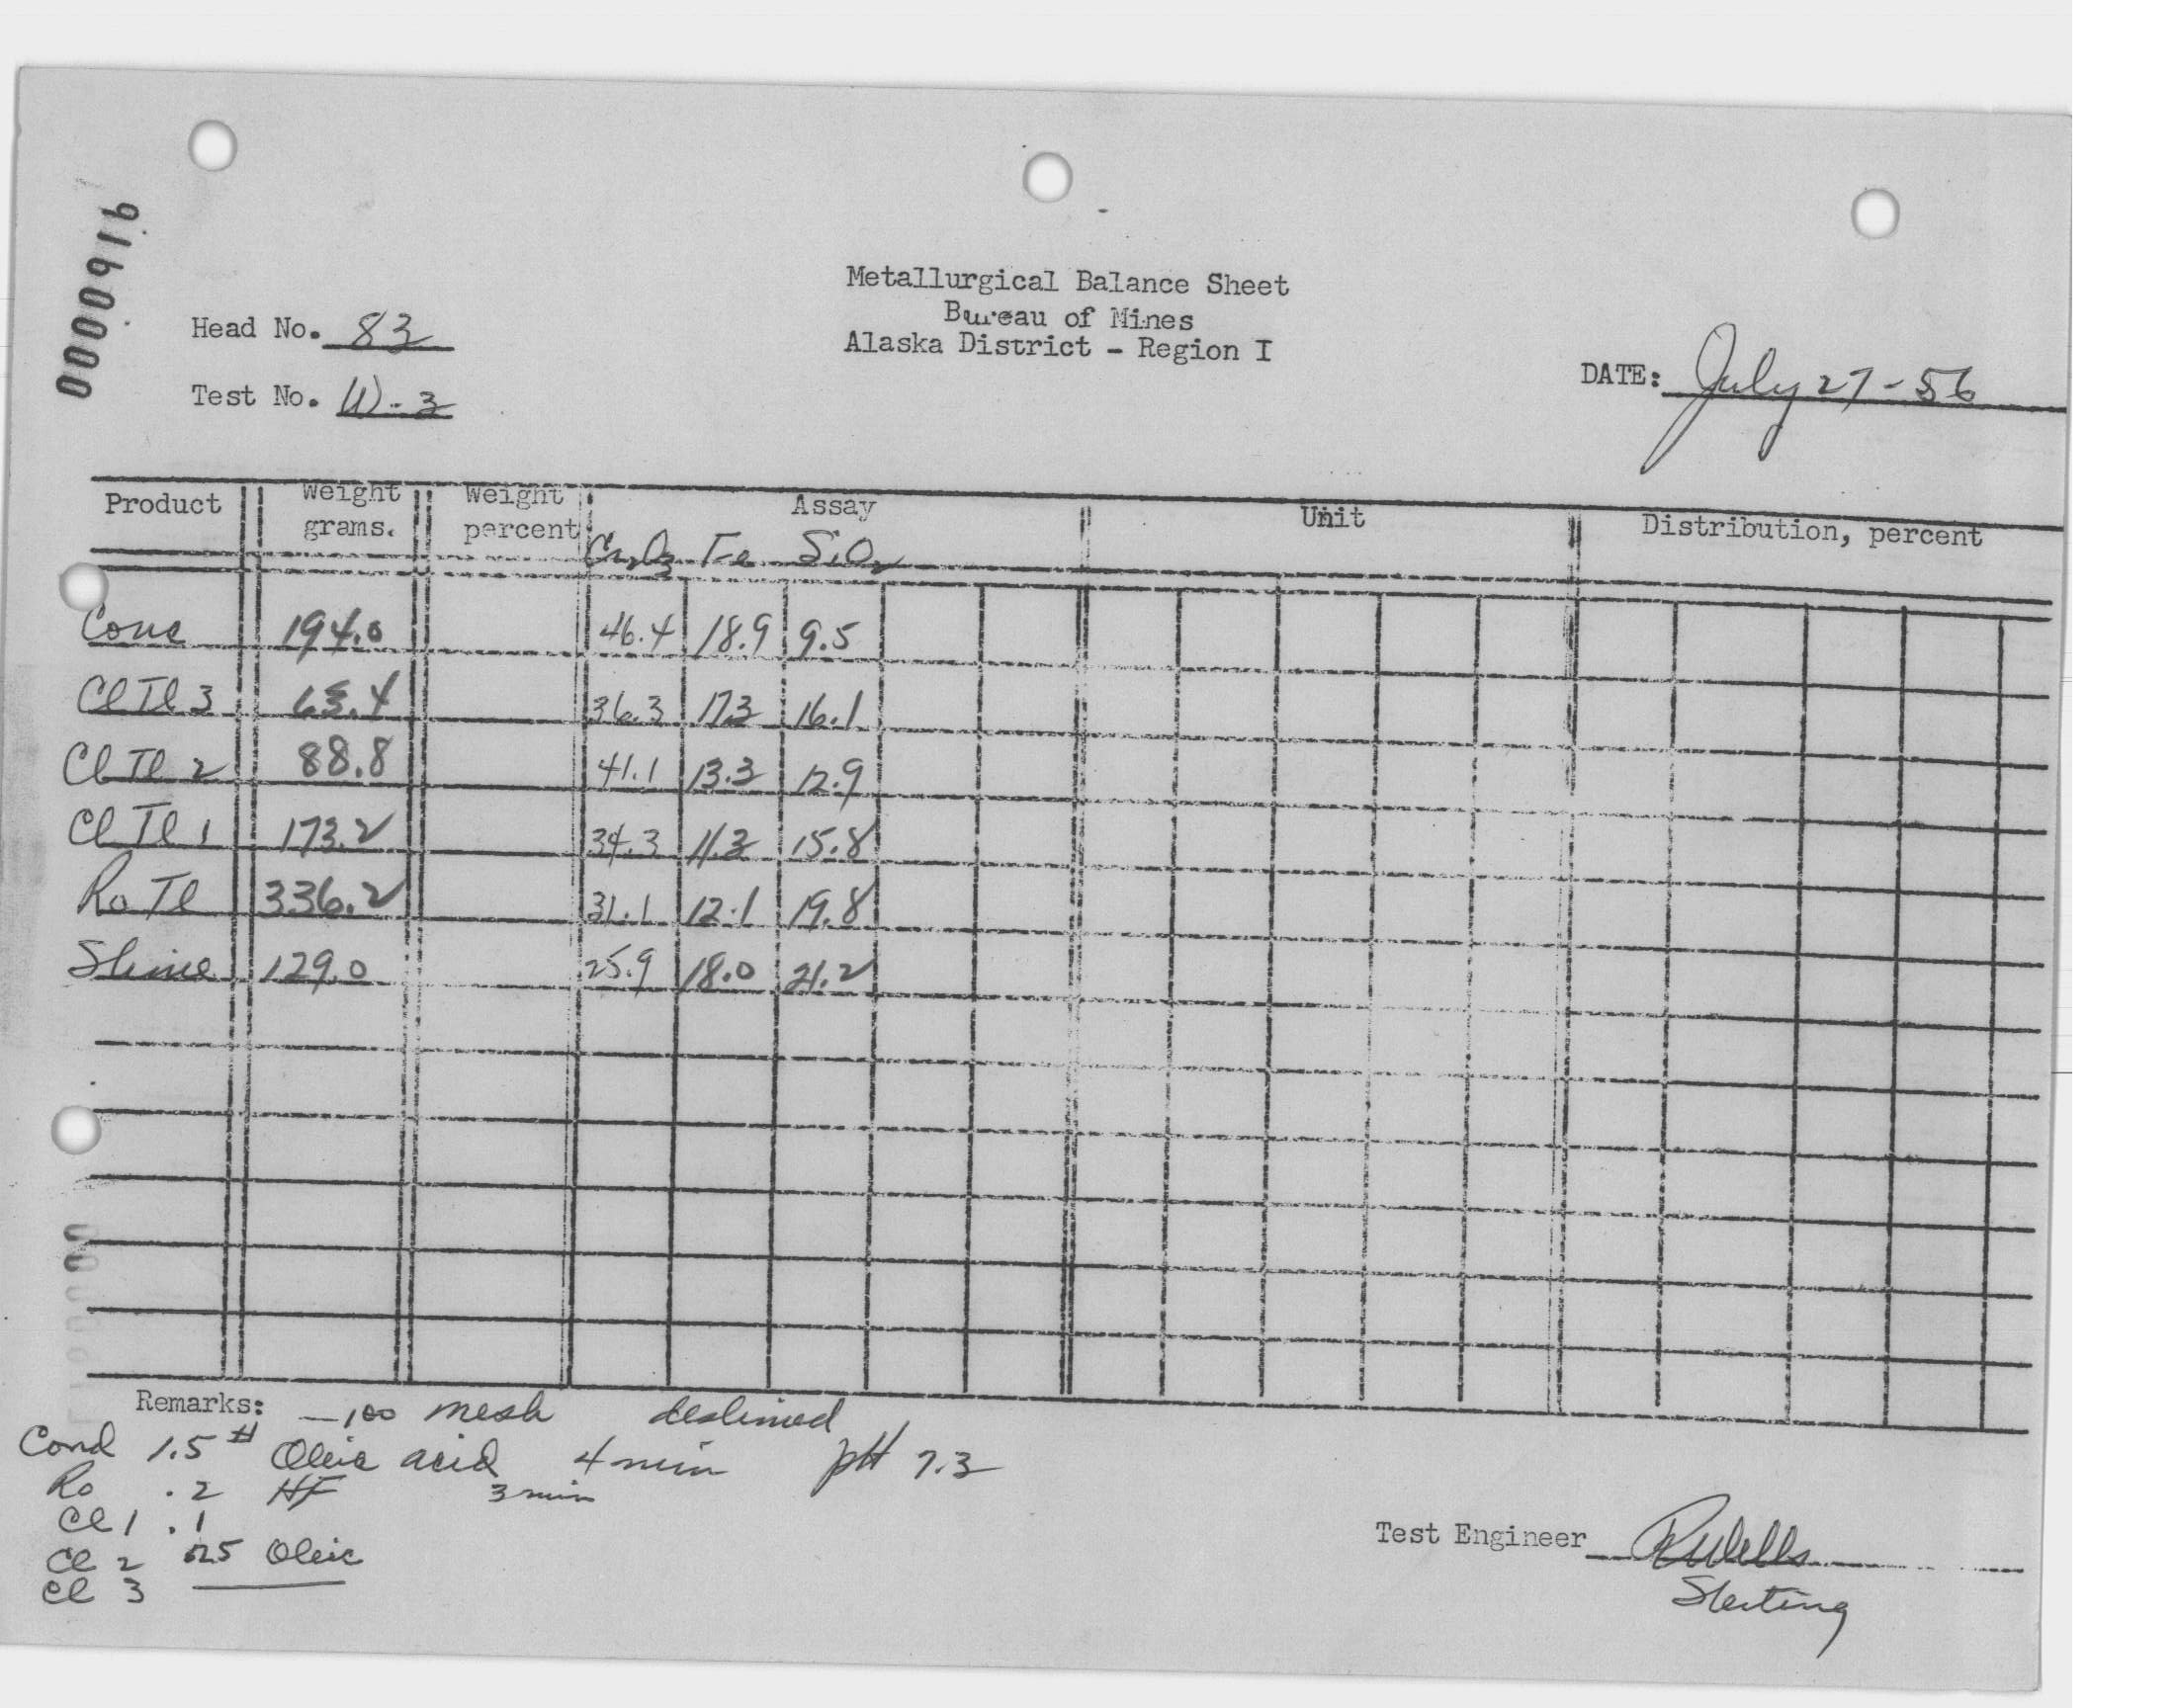 0000916
Metallurgical Balance Sheet
Bureau of Mines
Alaska District - Region I
Head No. 83
Test No. W-3
DATE: July 27-56
Product Weight grams. Weight percent Assay Unit Distribution, percent
Cr2O3 Fe SiO2
Conc 194.0 46.4 18.9 9.5
Cl Tl 3 63.4 36.3 17.3 16.1
Cl Tl 2 88.8 41.1 13.3 12.9
Cl Tl 1 173.2 34.3 11.3 15.8
Ro Tl 336.2 31.1 12.1 19.8
Slime 129.0 25.9 18.0 21.2
Remarks: -100 mesh deslimed
Cond 1.5 # Oleic acid 4 min pH 7.3
Ro .2 HF 3 min
Cl 1 .1
Cl 2 .25 Oleic
Cl 3
Test Engineer RWells